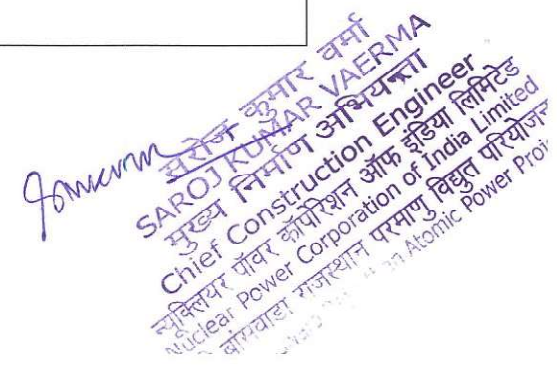 सरोज कुमार वर्मा
SAROJ KUMAR VAERMA
मुख्य निर्माण अभियन्ता
Chief Construction Engineer
न्यूक्लियर पॉवर कॉर्पोरेशन ऑफ इंडिया लिमिटेड
Nuclear Power Corporation of India Limited
बांसवाडा राजस्थान परमाणु विद्युत परियोजना
Atomic Power